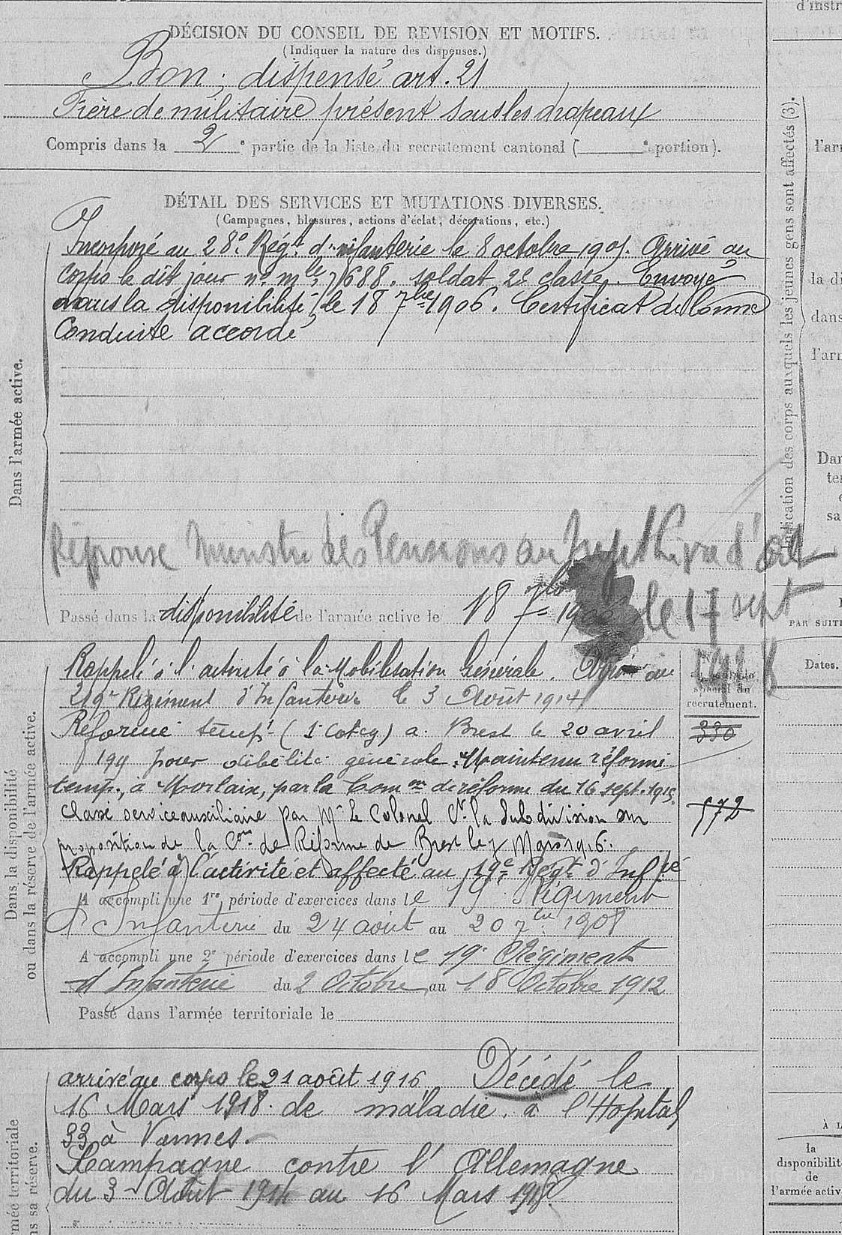 DÉCISION DU CONSEIL DE REVISION ET MOTIFS.
(Indiquer la nature des dispenses.)
Bon ; dispensé art. 21
Frère de militaire présent sous les drapeaux
Compris dans la 2e partie de la liste du recrutement cantonal ( e portion).
DÉTAIL DES SERVICES ET MUTATIONS DIVERSES.
(Campagnes, blessures, actions d'éclat, décorations, etc.)
Incorporé au 28e Régt d'infanterie le 8 octobre 1905. Arrivé au
corps le dit jour no mle 7688. soldat 2e classe. Envoyé
dans la disponibilité le 18 7bre 1906. Certificat de bonne
Conduite accordé
Dans l'armée active.
Réponse Ministre des Pensions au d'
le 17 sept
Passé dans la disponibilité de l'armée active le 18 7bre 1906
Rappelé à l'activité à la Mobilisation Générale. Arrivé au
219e Régiment d'Infanterie le 3 Août 1914
Réformé tempt (1e Catég) a Brest le 20 avril
pour débilité générale. Maintenu réformé
temp., à Morlaix, par la Comon de réforme du 16 sept. 1915
Classé service auxiliaire par Mr Le Colonel Ct la Subdivision sur
proposition de la Con de Réforme de Brest le Mars 1916.
Rappelé à l'activité et affecté au 19e Régt d'Infie
A accompli une 1re période d'exercices dans le 19e Régiment
d'Infanterie du 24 août au 20 7bre 1908
A accompli une 2e période d'exercices dans le 19e Régiment
d'Infanterie du 2 Octobre au 18 Octobre 1912
Passé dans l'armée territoriale le
Dans la disponibilité
ou dans la réserve de l'armée active.
recrutement.
330
572
arrivé au corps le 21 août 1916 Décédé le
16 Mars 1918 de maladie à l'Hôpital
33 à Vannes.
Campagne contre l'Allemagne
du 3 Août 1914 au 16 Mars 1918.
Indication des corps auxquels les jeunes gens sont affectés (3).
d'instr
PAR SUITE
Dates.
À L
la
disponibilité
de
l'armée active